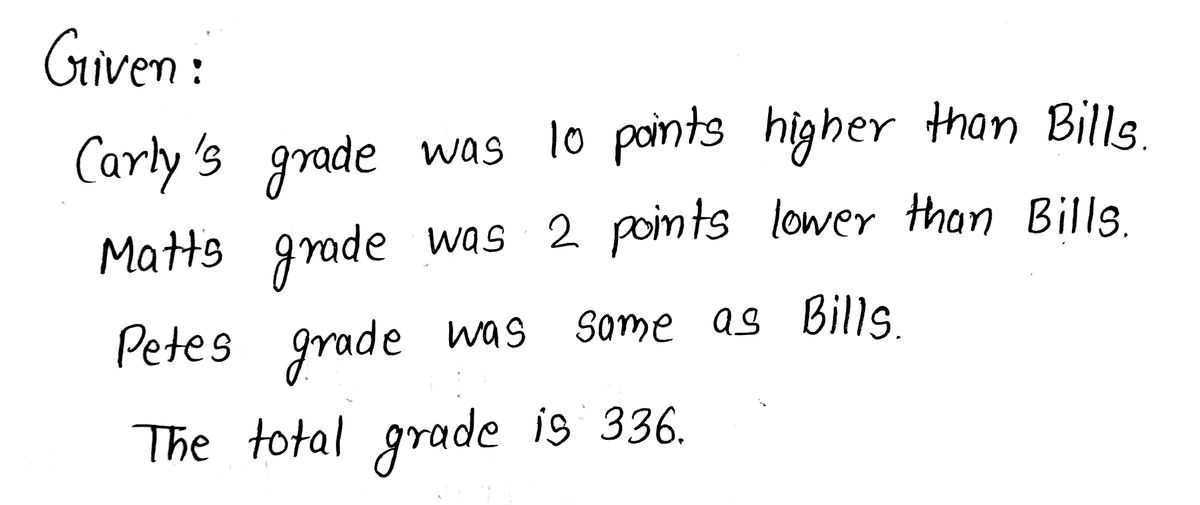 Given :
Carly's grade was 10 points higher than Bills.
Matts grade was 2 points lower than Bills.
Petes grade was same as Bills.
The total grade is 336.